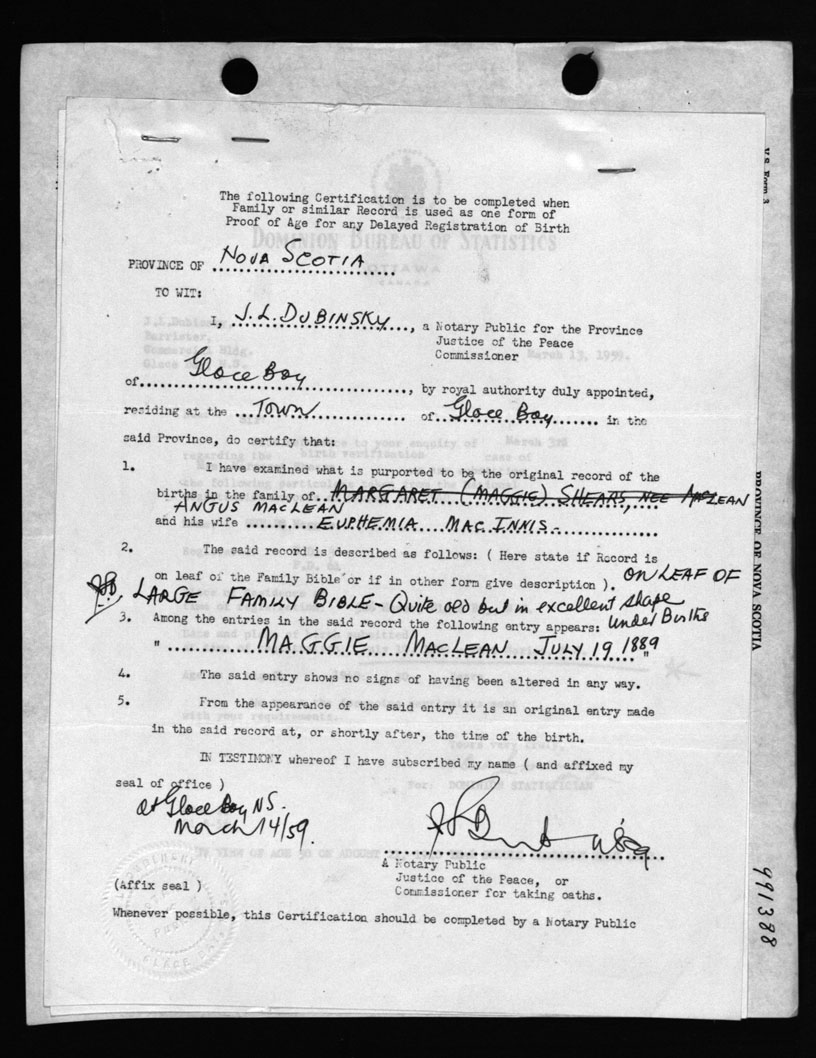 The following Certification is to be completed when
Family or similar Record is used as one form of
Proof of Age for any Delayed Registration of Birth
DOMINION BUREAU OF STATISTICS
OTTAWA
CANADA
PROVINCE OF NOVA SCOTIA
TO WIT:
I, J.L. DUBINSKY, a Notary Public for the Province
Justice of the Peace
Commissioner
March 13, 1959.
of Glace Bay, by royal authority duly appointed,
residing at the TOWN of Glace Bay in the
said Province, do certify that:
1. I have examined what is purported to be the original record of the
births in the family of MARGARET (MAGGIE) SHEARS, NEE MACLEAN
ANGUS MACLEAN
and his wife EUPHEMIA MACINNIS
2. The said record is described as follows: ( Here state if Record is
on leaf of the Family Bible or if in other form give description ). ON LEAF OF
LARGE FAMILY BIBLE - Quite old but in excellent shape
3. Among the entries in the said record the following entry appears: Under Births
" MAGGIE MACLEAN JULY 19, 1889 "
4. The said entry shows no signs of having been altered in any way.
5. From the appearance of the said entry it is an original entry made
in the said record at, or shortly after, the time of the birth.
IN TESTIMONY whereof I have subscribed my name ( and affixed my
seal of office )
at Glace Bay NS.
March 14/59.
A Notary Public
Justice of the Peace, or
Commissioner for taking oaths.
(Affix seal )
Whenever possible, this Certification should be completed by a Notary Public
V.S. Form 3
PROVINCE OF NOVA SCOTIA
991388